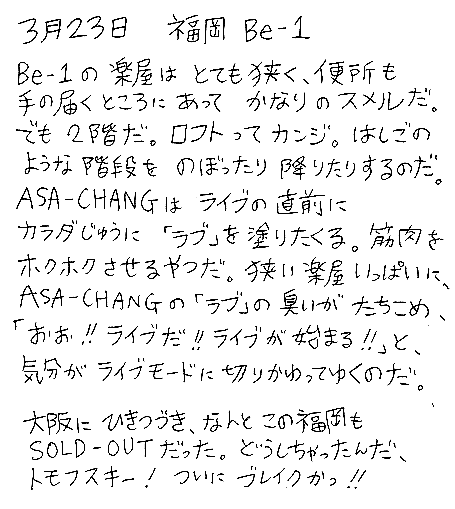 3月23日 福岡 Be-1
Be-1の楽屋はとても狭く、便所も
手の届くところにあってかなりのスメルだ。
でも2階だ。ロフトってカンジ。はしごの
ような階段をのぼったり降りたりするのだ。
ASA-CHANGはライブの直前に
カラダじゅうに「ラブ」を塗りたくる。筋肉を
ホクホクさせるやつだ。狭い楽屋いっぱいに、
ASA-CHANGの「ラブ」の臭いがたちこめ、
「おお!!ライブだ!!ライブが始まる!!」と、
気分がライブモードに切りかわってゆくのだ。
大阪にひきつづき、なんとこの福岡も
SOLD-OUTだった。どうしちゃったんだ、
トモフスキー!ついにブレイクかっ!!